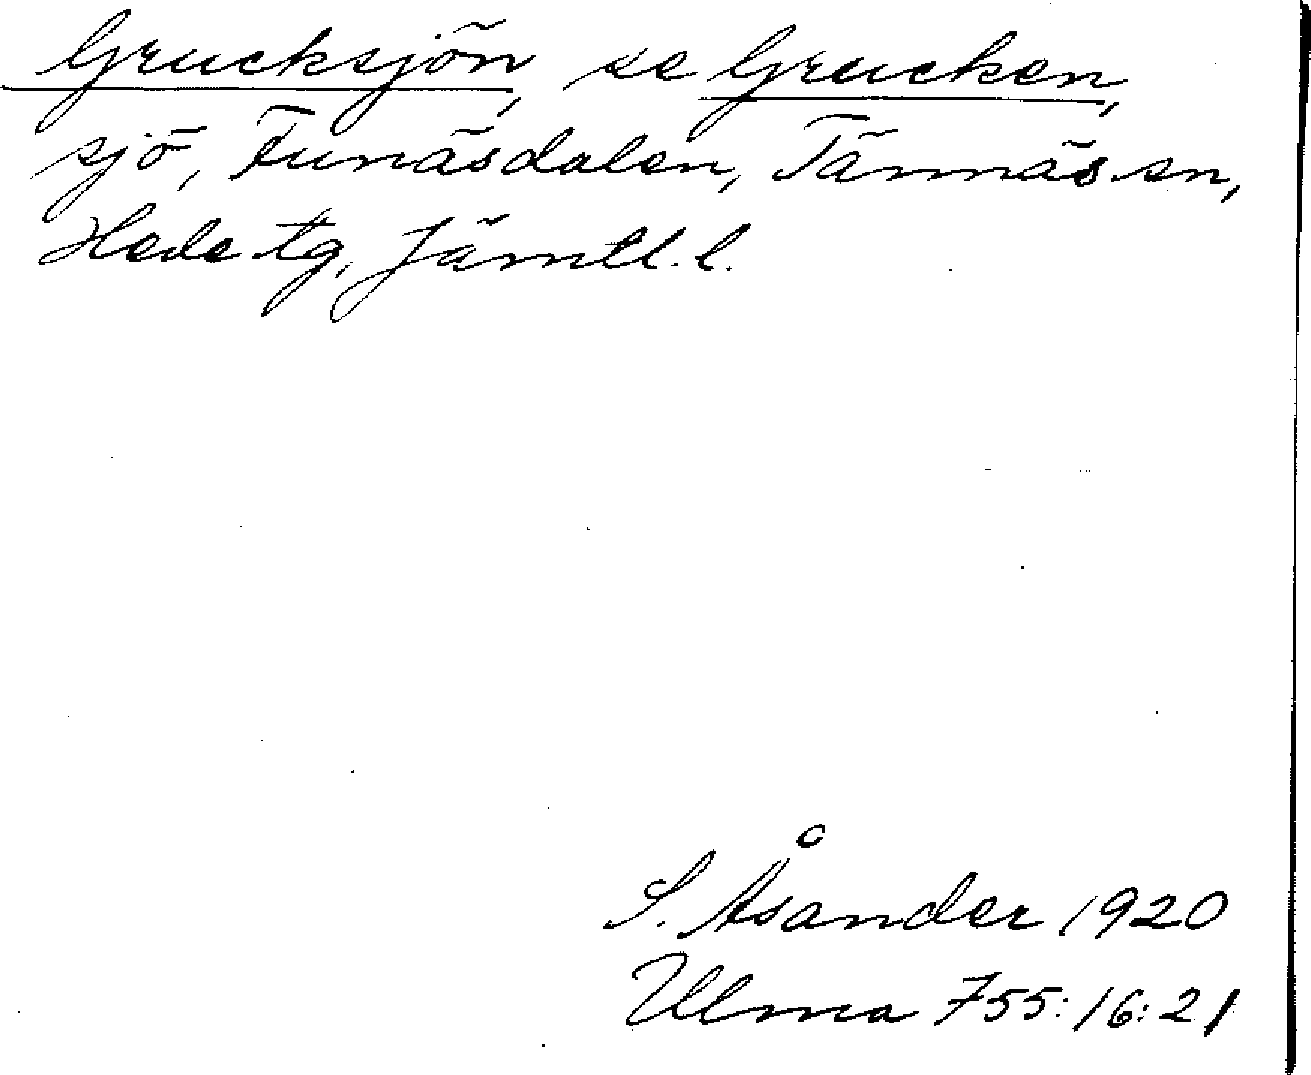 Grucksjön, se Grucken,
sjö, Funäsdalen, Tännäs sn,
Hede tg, Jämtl. l.
S. Åsander 1920
Ulma 755:16:21